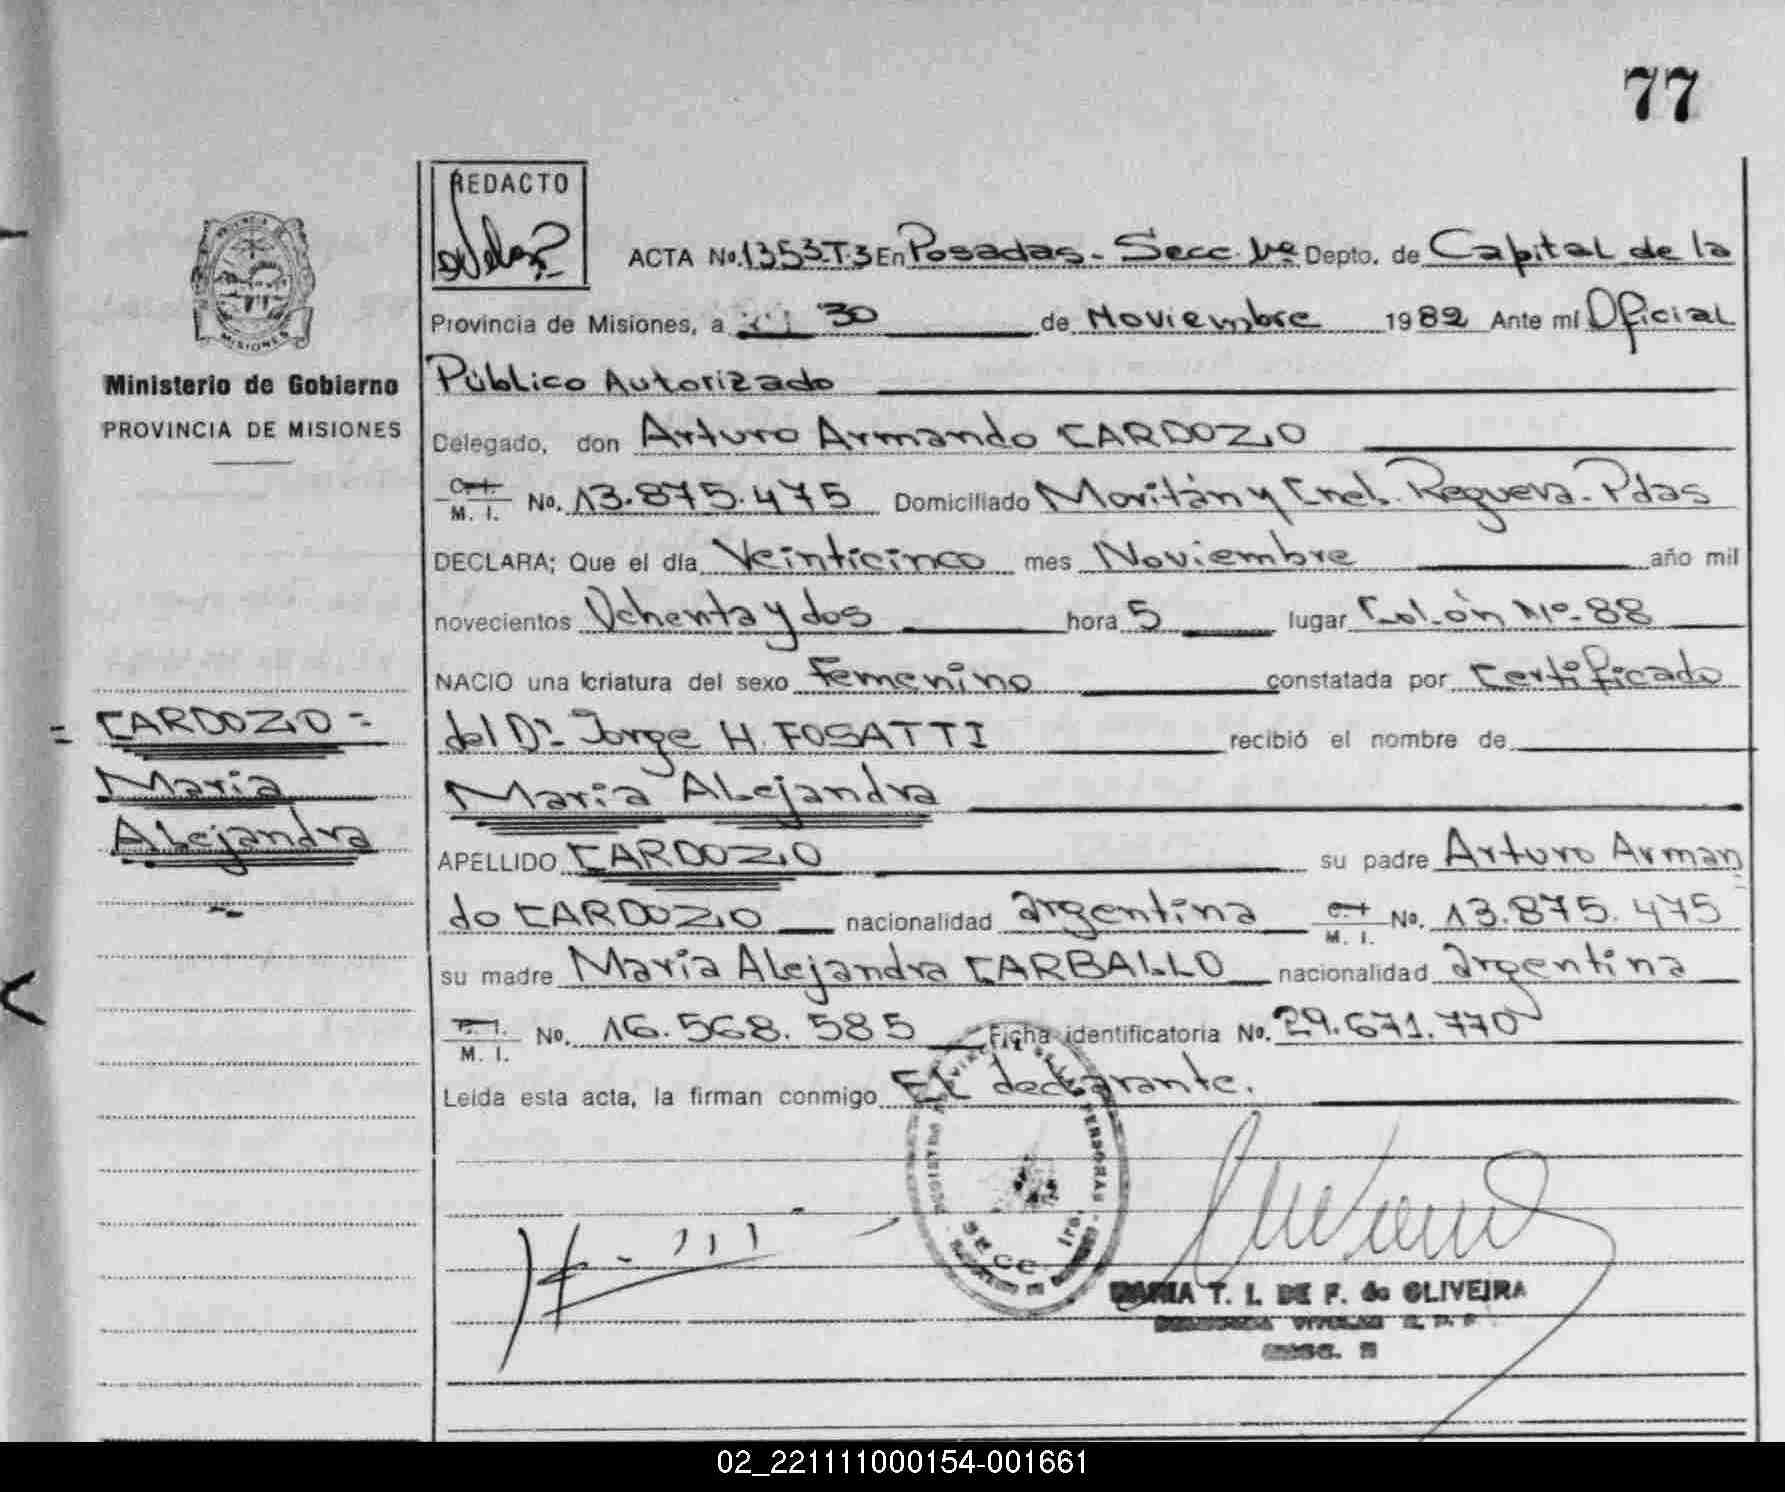 77
REDACTO
ACTA No. 1353.T.3 En Posadas - Secc. 1ra Depto. de Capital de la
Provincia de Misiones, a 30 de Noviembre 1982 Ante mí Oficial
Ministerio de Gobierno
PROVINCIA DE MISIONES
Público Autorizado
Delegado, don Arturo Armando CARDOZO
C.I. M. I. No. 13.875.475 Domiciliado Moritán y Cnel. Reguera - Pdas
DECLARA; Que el día Veinticinco mes Noviembre año mil
novecientos Ochenta y dos hora 5 lugar Colón Nº 88
NACIO una criatura del sexo Femenino constatada por Certificado
= CARDOZO =
María
Alejandra
del Dr. Jorge H. FOSATTI recibió el nombre de
María Alejandra
APELLIDO CARDOZO su padre Arturo Arman
do CARDOZO nacionalidad argentina C.I. M. I. No. 13.875.475
su madre María Alejandra CARBALLO nacionalidad argentina
M. I. No. 16.568.585 Ficha identificatoria No. 29.671.770
Leída esta acta, la firman conmigo El declarante.
SECC 1ra.
MARIA T. I. DE F. de OLIVEIRA
02_221111000154-001661